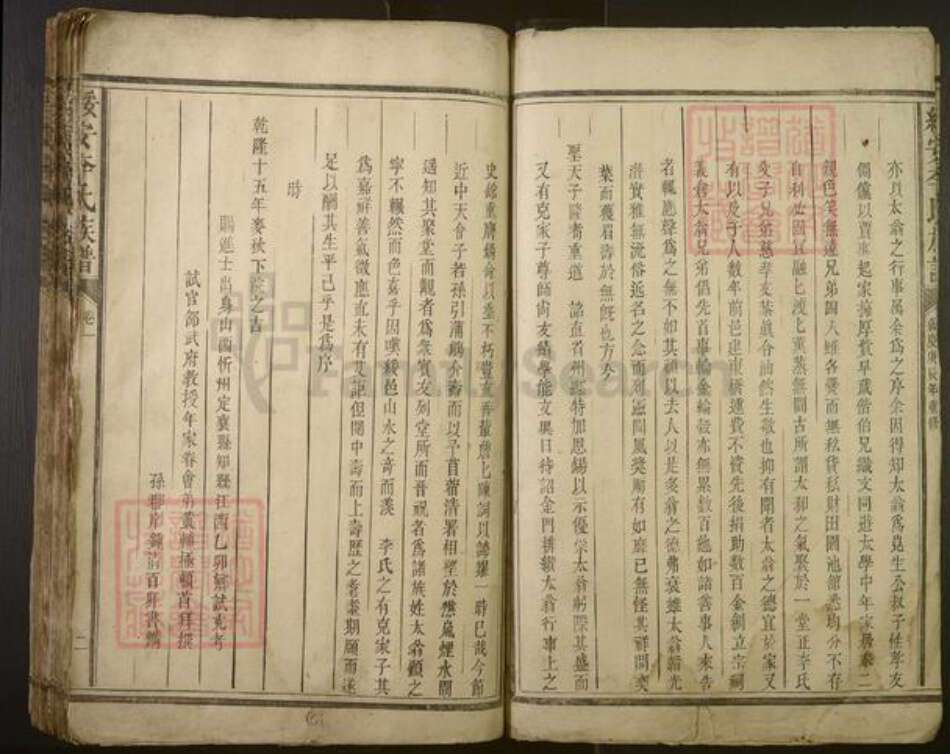 亦以太翁之行事属余為之序余因得知太翁為堯生公叔子性孝友
倜儻以賈車起家擁厚貲早歲偕伯兄識文同遊太學中年家居奉二
親色笑無違兄弟四人雖各爨而無私貨私財田園池館悉均分不存
自利必固宜融七渡七薰蒸無間古所謂太和之氣聚於一堂正李氏
父子兄弟慈孝友恭萬合油然生敬也抑有聞者太翁之德宜於家又
有以及于人数年前邑建東橋運費不資先後捐助数百金創立宗祠
義倉太翁兄弟倡先首事輸金輸穀亦無累数百他如諸善事人來告
者輒應聲為之無不如其願以去人以是多翁之德弗衰雖太翁韜光
潛實雅無流俗近名之念而列
葉而獲眉壽於無旣也方今
聖天子隆耆重道 詔直省州縣特加恩錫以示優崇太翁躬際其盛而
又有克家子尊師尚友績學能文異日待詔金門排纘太翁行事上之
史館重膺錫命以垂不朽豈直吾輩詹七陳詞以誌耀一時已哉今節
近中天會子若孫引蒲觴介壽而以予首蓿清署相望於樵嵐煙水間
遥知其聚堂而觀者為衆賓友列堂所而晉祝者為諸族姓太翁顧之
寧不輾然而色喜乎因嘆綏邑山水之奇而羨 李氏之有克家子其
為嘉祥善氣徵應直未有艾詎但閱中壽而上壽歷之耄耋期頤而遂
足以酬其生平已乎是為序
時
乾隆十五年麥秋下浣之吉
賜進士出身山西忻州定襄縣知縣江西乙卯鄉試充考
試官邵武府教授年家眷會弟黃輔極頓首拜撰
孫郡庠錦清百拜書
綏安李氏族譜
卷一
二
綏安李氏族譜
庚辰年重修
FamilySearch